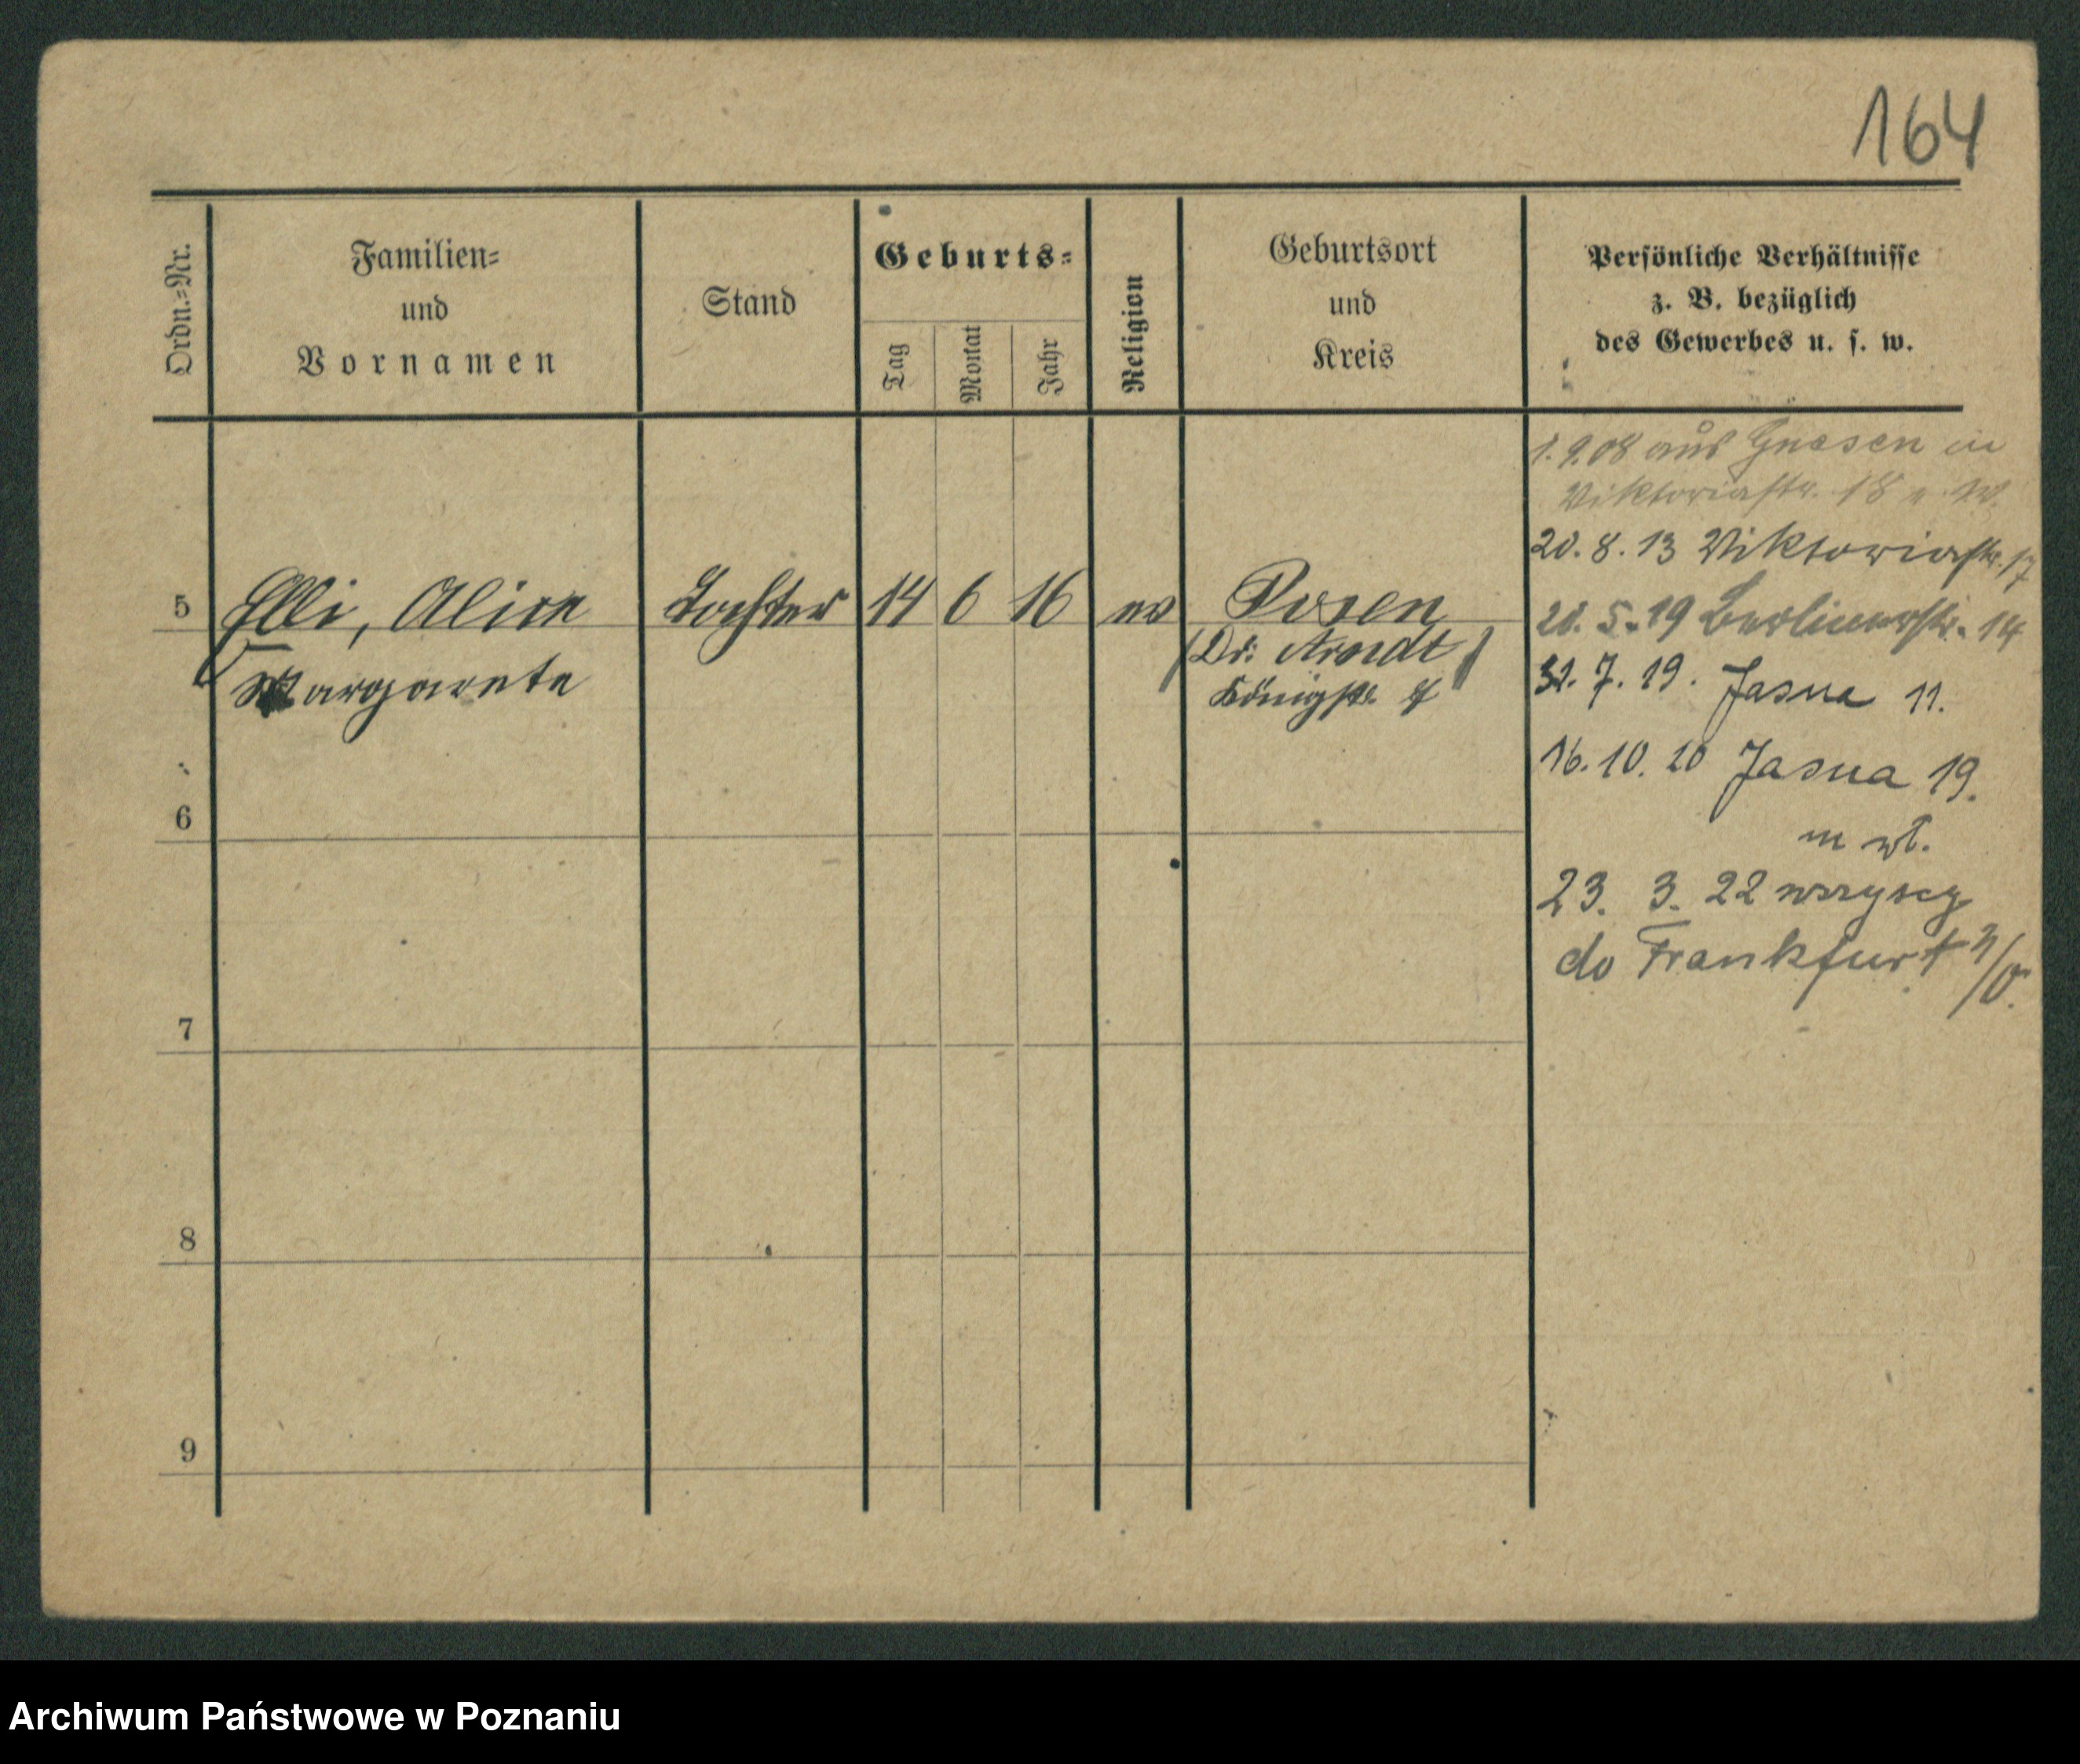 164
Ordn.=Nr.
Familien=
und
Vornamen
Stand
Geburts=
Tag
Monat
Jahr
Religion
Geburtsort
und
Kreis
Persönliche Verhältnisse
z. B. bezüglich
des Gewerbes u. s. w.
1.9.08 aus Gnesen in
Viktoriastr. 18
20.8.13 Viktoriastr. 17
5 Elli, Alice Tochter 14 6 16 ev Posen
Margarete
(Dr. Arndt)
Königstr.
20.5.19 Berlinerstr. 14
31.7.19. Jasna 11.
16.10.20 Jasna 19.
m wł.
23. 3. 22 wszyscy
do Frankfurt n/O.
6
7
8
9
Archiwum Państwowe w Poznaniu